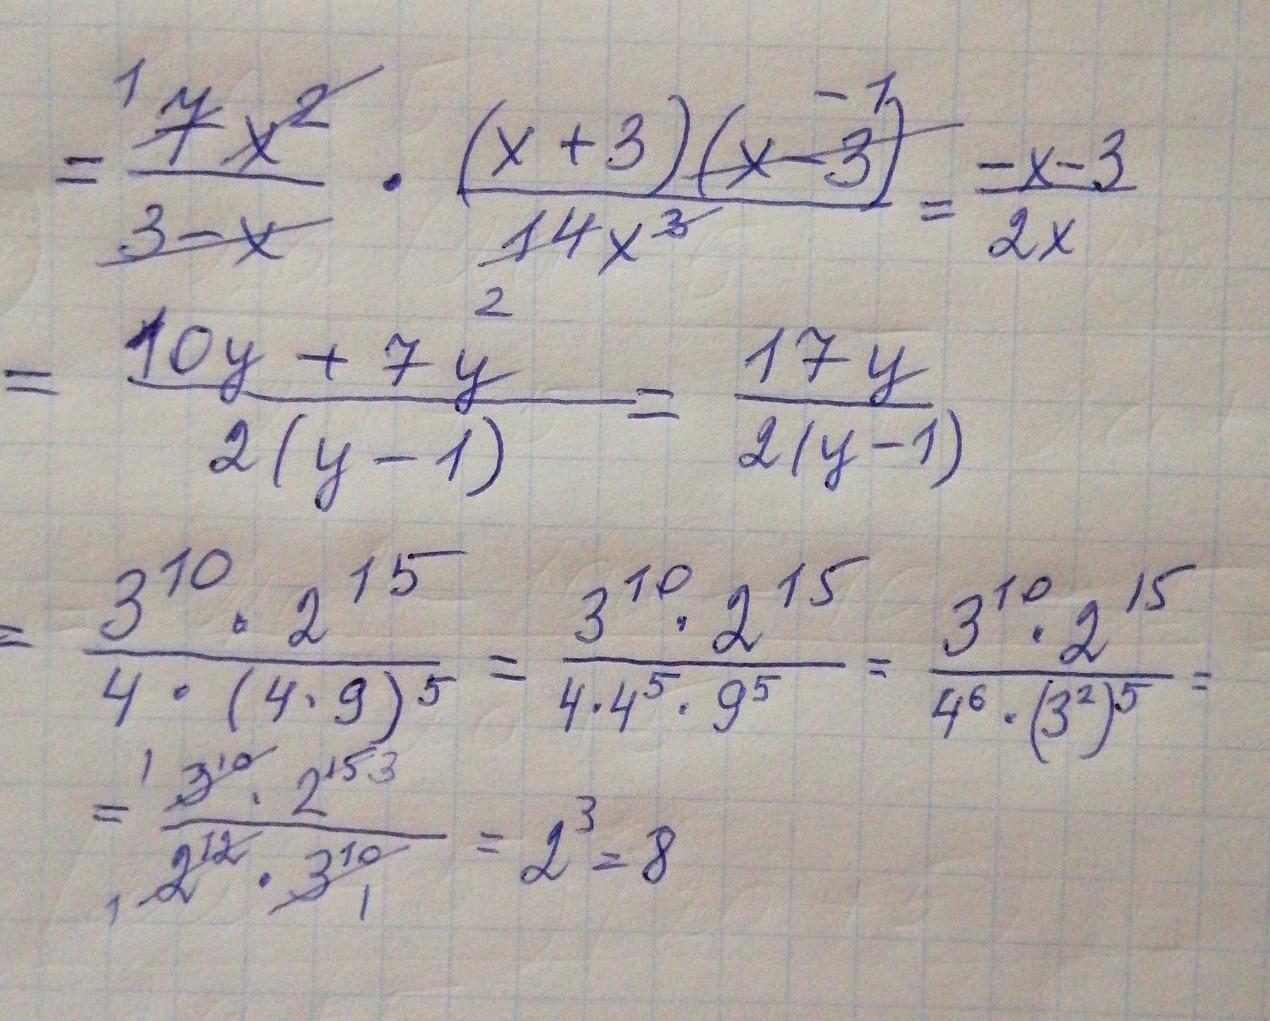 = ¹7x²/(3-x) · (x+3)(x-3)⁻¹/14x³ ₂ = (-x-3)/2x
= (10y + 7y)/2(y-1) = 17y/2(y-1)
= 3¹⁰ · 2¹⁵/4 · (4·9)⁵ = 3¹⁰ · 2¹⁵/4·4⁵·9⁵ = 3¹⁰ · 2¹⁵/4⁶·(3²)⁵ =
= ¹3¹⁰ · 2¹⁵ ³/₁2¹² · 3¹⁰ ₁ = 2³ = 8